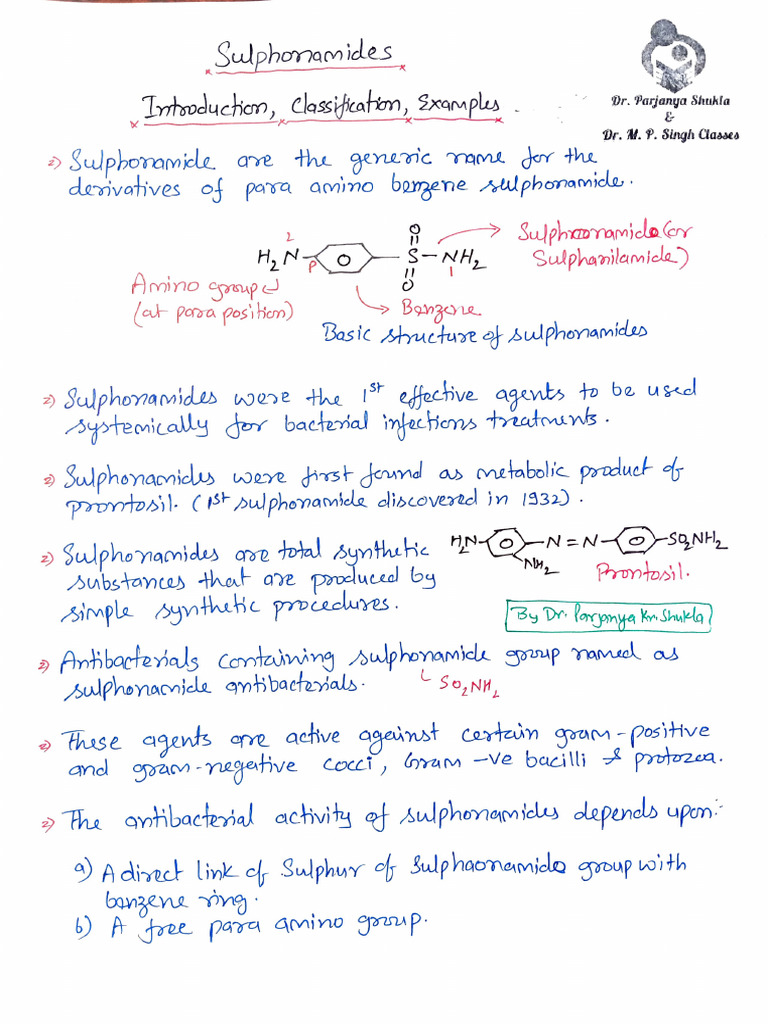 Sulphonamides
Dr. Parjanya Shukla
&
Dr. M. P. Singh Classes
Introduction, Classification, Examples.
Sulphonamide are the generic name for the
derivatives of para amino benzene sulphonamide.
H2N
2
P
O
O
S
O
NH2
1
Sulphonamide (or
Sulphanilamide)
Amino group
(at para position)
Benzene
Basic structure of sulphonamides
Sulphonamides were the 1st effective agents to be used
systemically for bacterial infections treatments.
Sulphonamides were first found as metabolic product of
prontosil. (1st sulphonamide discovered in 1932).
Sulphonamides are total synthetic
substances that are produced by
simple synthetic procedures.
H2N
NH2
N=N
SO2NH2
Prontosil.
By Dr. Parjanya Kr. Shukla
Antibacterials containing sulphonamide group named as
sulphonamide antibacterials.
SO2NH2
These agents are active against certain gram-positive
and gram-negative cocci, Gram -ve bacilli & protozoa.
The antibacterial activity of sulphonamides depends upon:-
a) A direct link of Sulphur of Sulphaonamide group with
benzene ring.
b) A free para amino group.